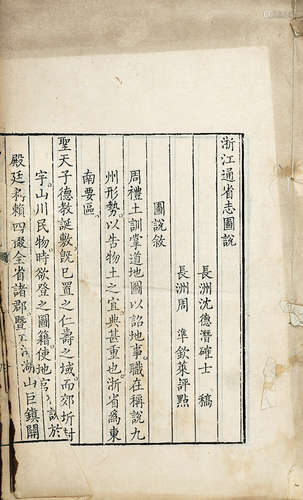 浙江通省志圖說
長洲沈德潛確士 稿
長洲周 準欽萊評點
圖說敘
周禮土訓掌道地圖以詔地事職在稱說九
州形勢以告物土之宜典甚重也浙省為東
南要區
聖天子德教誕敷既已置之仁壽之域而郊圻封
宇山川民物時欲登之圖籍使地官 於
殿廷
賴四
全省諸郡暨 山巨鎮關